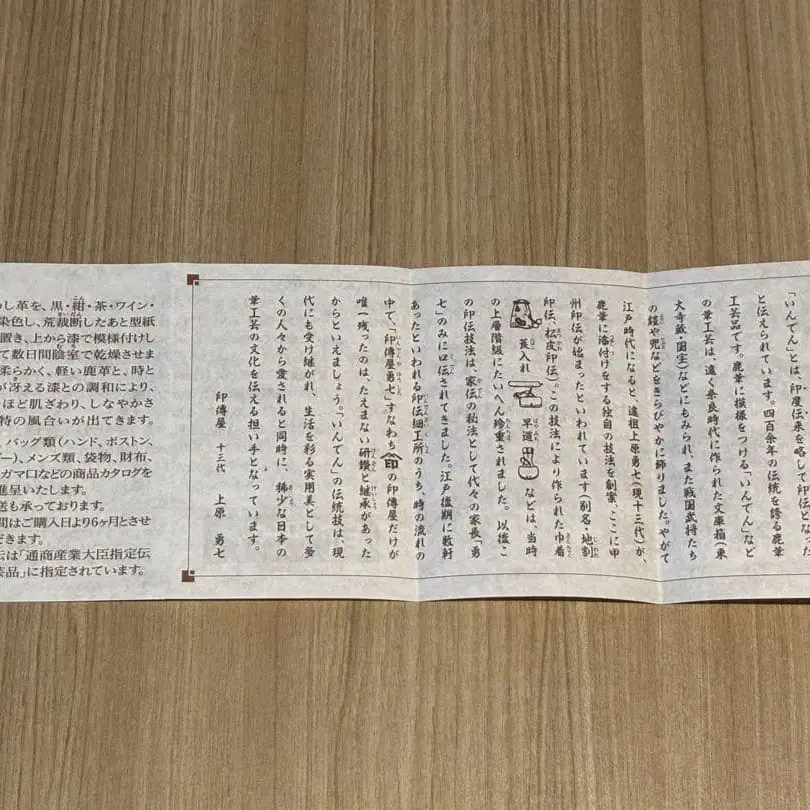 「いんでん」とは、印度伝来を略して印伝となった
と伝えられています。四百余年の伝統を誇る鹿革
工芸品です。鹿革に模様をつける「いんでん」など
の革工芸は、遠く奈良時代に作られた文庫箱(東
大寺蔵・国宝)などにもみられ、また戦国武将たち
の鎧や兜などをきらびやかに飾りました。やがて
江戸時代になると、遠祖上原勇七(現十三代)が、
鹿革に漆付けをする独自の技法を創案、ここに甲
州印伝が始まったといわれています(別名・地割
印伝、松皮印伝)。この技法により作られた巾着
莨入れ 早道 などは、当時
の上層階級にたいへん珍重されました。以後こ
の印伝技法は、家伝の秘法として代々の家長「勇
七」のみに口伝されてきました。江戸後期に数軒
あったといわれる印伝細工所のうち、時の流れの
中で、「印傳屋勇七」すなわち印の印傳屋だけが
唯一残ったのは、たえまない研鑽と継承があった
からといえましょう。「いんでん」の伝統技は、現
代にも受け継がれ、生活を彩る実用美として多
くの人々から愛されると同時に、稀少な日本の
革工芸の文化を伝える担い手となっています。
印傳屋 十三代 上原 勇七
し革を、黒・紺・茶・ワイン・
染色し、荒裁断したあと型紙
置き、上から漆で模様付けし
て数日間陰室で乾燥させま
柔らかく、軽い鹿革と、時と
が冴える漆との調和により、
ほど肌ざわり、しなやかさ
特の風合いが出てきます。
、バッグ類(ハンド、ボストン、
ー)、メンズ類、袋物、財布、
ガマ口などの商品カタログを
進呈いたします。
送も承っております。
間はご購入日より6ヶ月とさせ
だきます。
伝は「通商産業大臣指定伝
芸品」に指定されています。